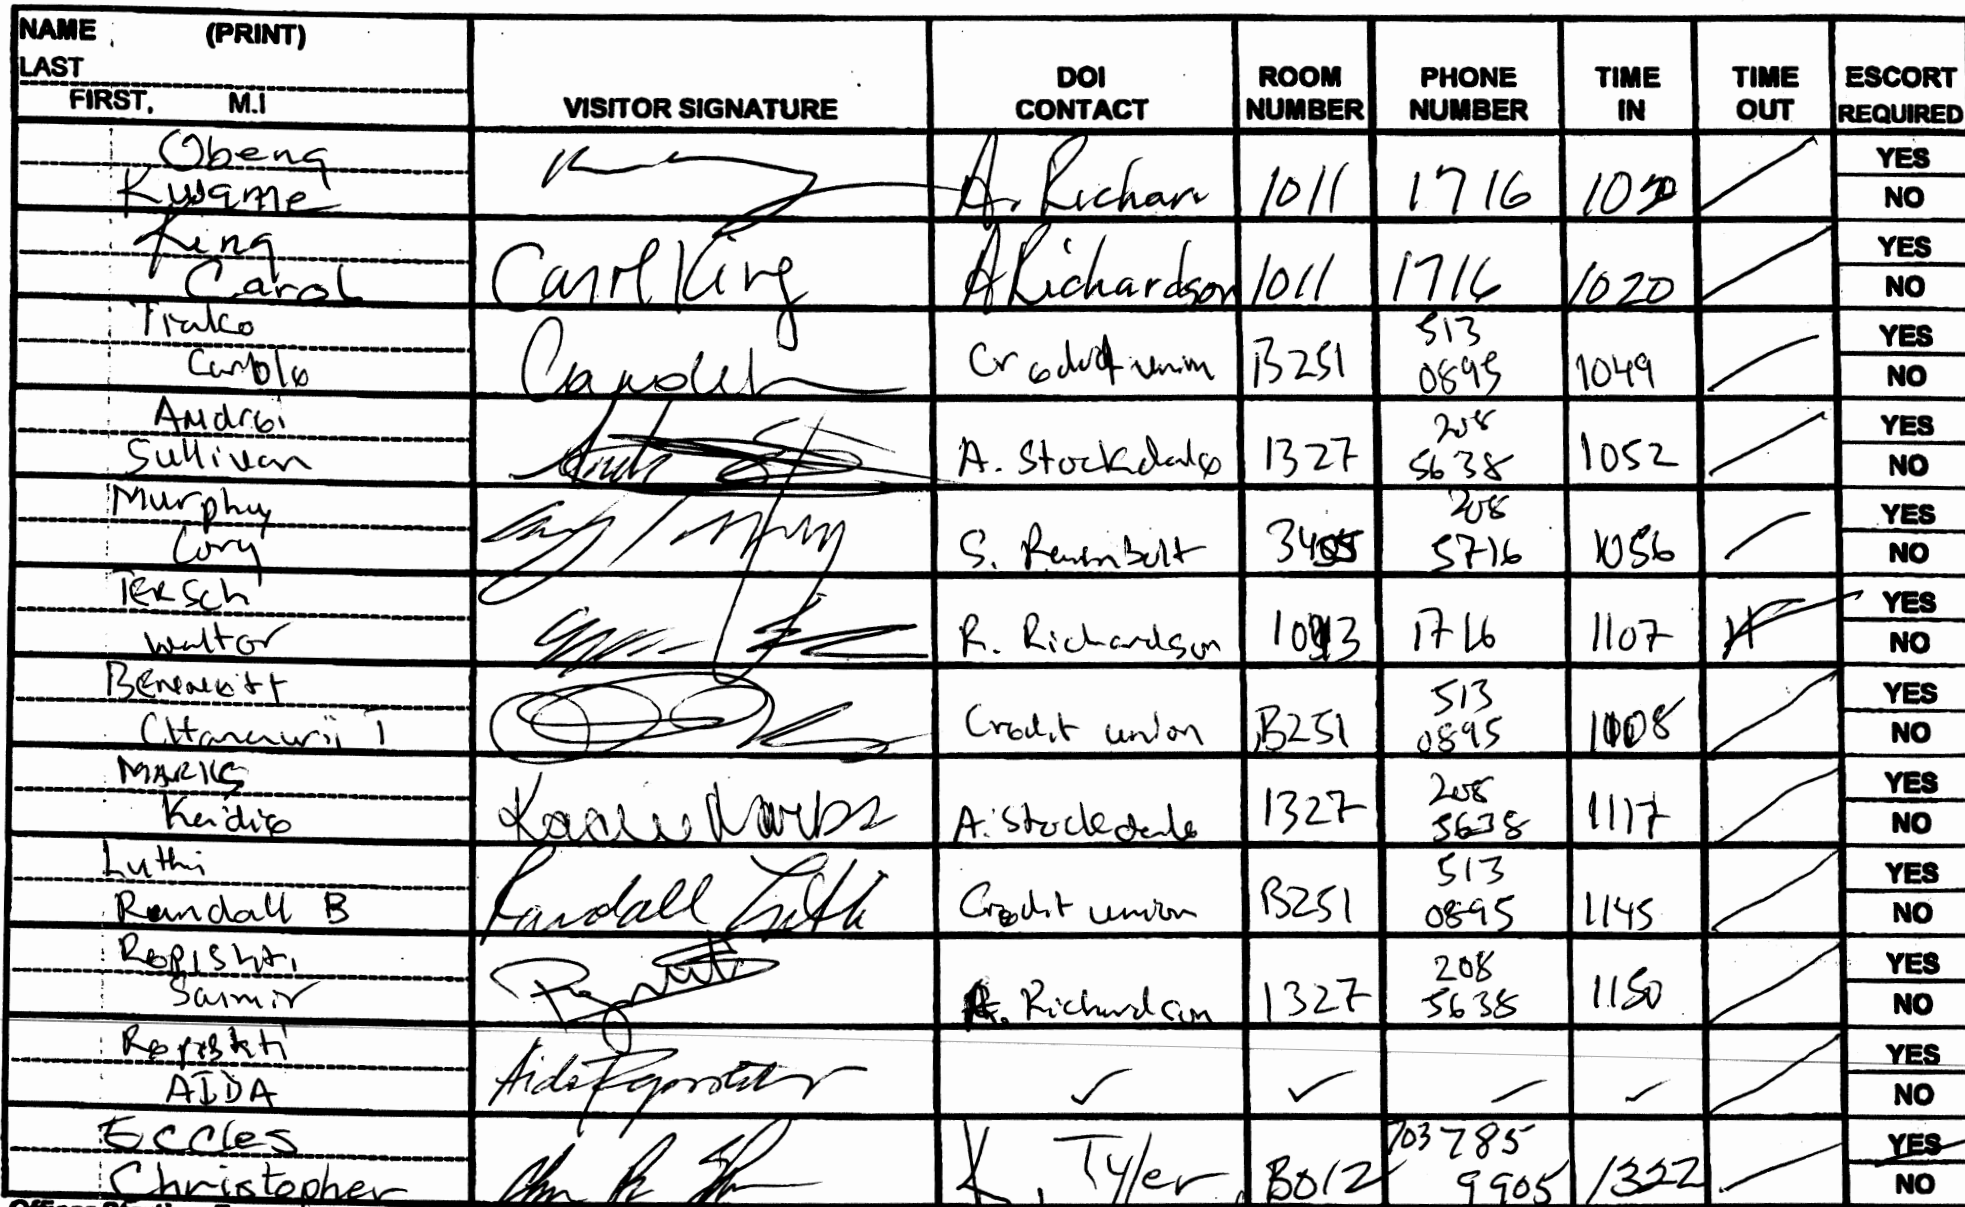 NAME (PRINT)
LAST
FIRST, M.I
VISITOR SIGNATURE
DOI CONTACT
ROOM NUMBER
PHONE NUMBER
TIME IN
TIME OUT
ESCORT REQUIRED
Obeng
Kwame
A. Richan 1011 1716
YES
NO
King
Carol
Carol King A Richardson 1011 1716 1020
YES
NO
Credit union B251 513 0895 1049
YES
NO
Sullivan
A. Stockdale 1327 208 5638 1052
YES
NO
Murphy
Cory
S. 208 5716 1056
YES
NO
Tersch
Walter
R. Richardson 1716 1107
YES
NO
Credit union B251 513 0895
YES
NO
MARKS
A. Stockdale 1327 208 5638 1117
YES
NO
Luthi
Randall B
Randall Luthi Credit union B251 513 0895 1145
YES
NO
Repishti
Saimir
A. Richardson 1327 208 5638 1150
YES
NO
Repishti
AIDA
Aida Repishti ✓ ✓
YES
NO
Eccles
Christopher
K. Tyler B012 703 785 9905 1322
YES
NO